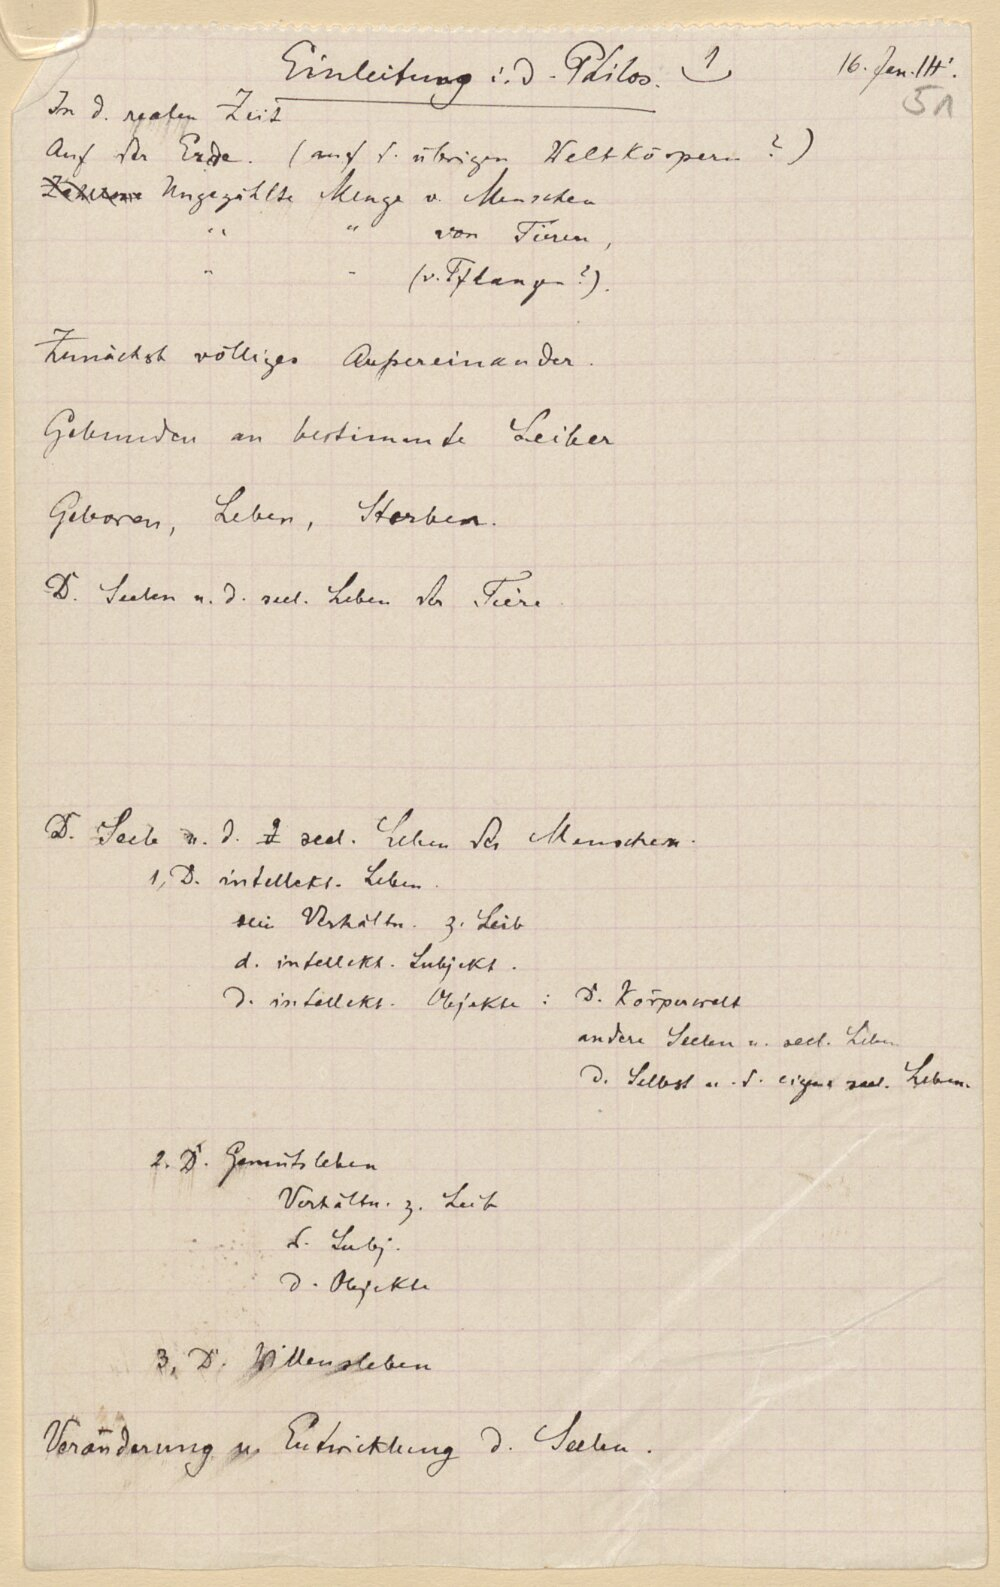 Einleitung i. d. Philos. 1
16. Jan. 14.
51
In d. realen Zeit
Auf der Erde. (auf d. übrigen Weltkörpern?)
Ungezählte Menge v. Menschen
" " von Tieren,
" " (v. Pflanzen?).
Zunächst völliges Außereinander.
Gebunden an bestimmte Leiber
Geboren, Leben, Sterben.
D. Seelen u. d. seel. Leben der Tiere
D. Seele u. d. seel. Leben des Menschen.
1, D. intellekt. Leben.
sein Verhältn. z. Leib
d. intellekt. Subjekt.
D. intellekt. Objekte : D. Körperwelt
andere Seelen u. seel. Leben
D. Selbst u. d. eigene seel. Leben.
2. D. Gemütsleben
Verhältn. z. Leib
d. Subj.
D. Objekte
3, D. Willensleben
Veränderung u. Entwicklung d. Seelen.